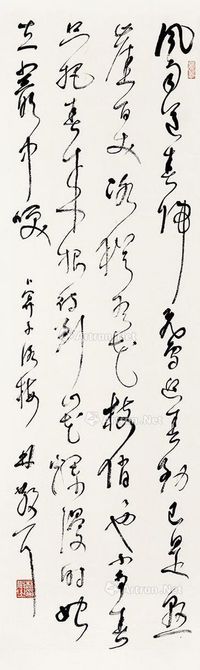 风雨送春归飞雪迎春到已是悬
崖百丈冰犹有花枝俏俏也不争春
只把春来报待到山花烂漫时她
在丛中笑
卜算子咏梅
Artron.Net
Artron.Net
Artron.Net